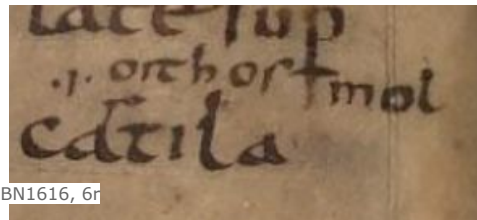 lace sup
.i. orth or† mol
cāo̅tila
BN1616, 6r